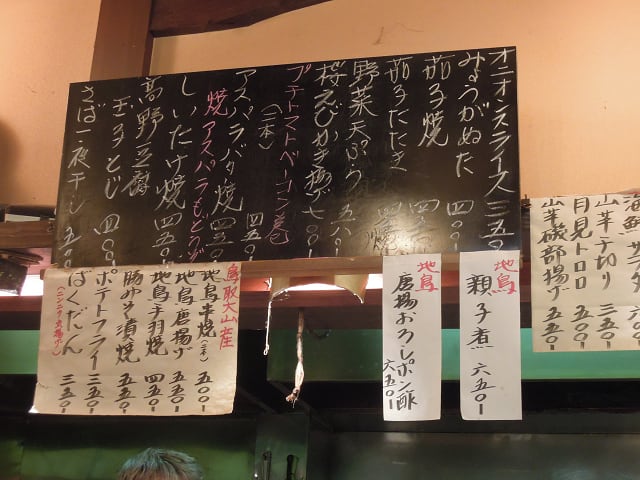 オニオンスライス 三五〇
みょうがぬた 四〇〇
茄子焼
茄子たたき
野菜天ぷら 五八〇
桜えびかき揚げ 七〇〇
プチトマトベーコン巻
(二本) 四五〇
アスパラバタ焼 四五〇
焼アスパラもどうぞ
しいたけ焼 四五〇
高野豆腐
玉子とじ 四〇〇
さば一夜干し 五〇〇
海鮮
山芋千切り 三五〇
月見トロロ 六〇〇
山芋磯部揚げ 五五〇
地鳥
親子煮 六五〇
地鳥
唐揚おろしポン酢 六五〇
鳥取大山産
地鳥串焼(二本) 五〇〇
地鳥唐揚げ 五五〇
地鳥手羽焼 四五〇
豚みそ漬焼 五五〇
ポテトフライ 三五〇
ばくだん 三五〇
(ニンニク丸揚げ)